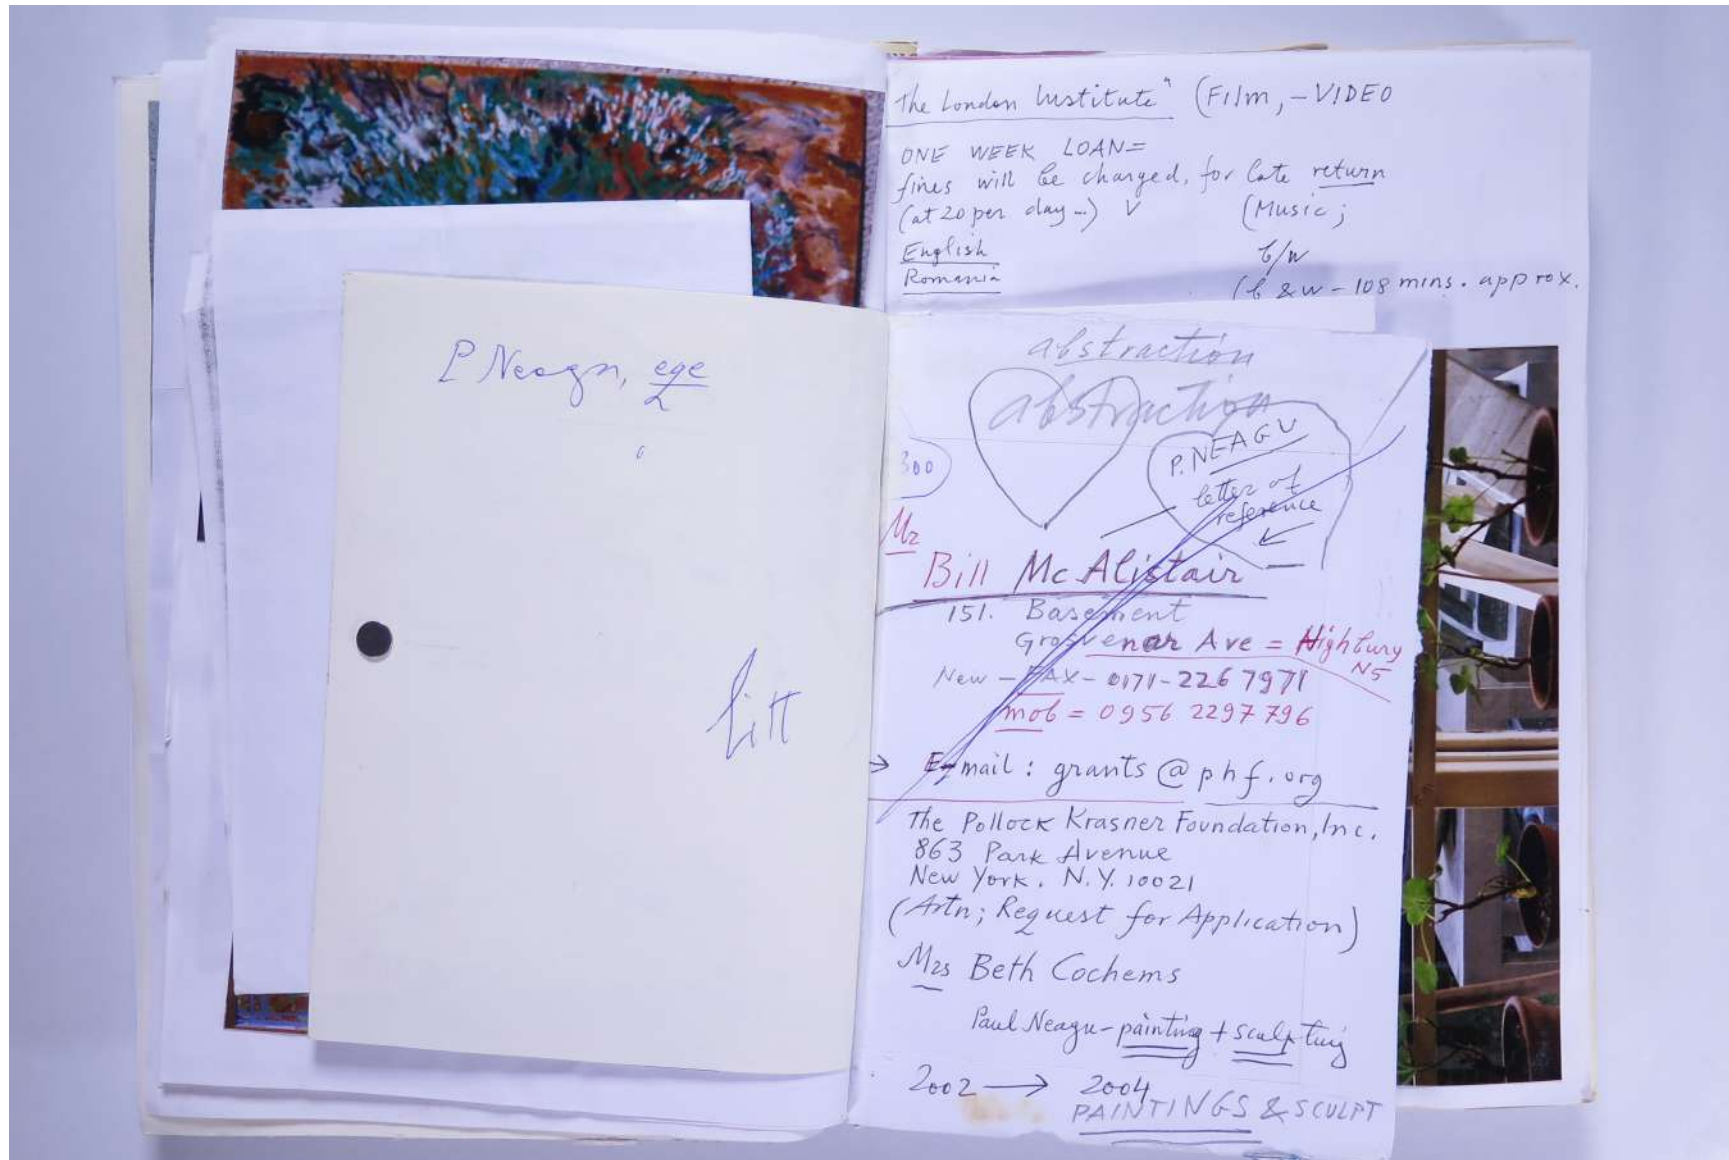 P Neagu, ege
litt
The London Institute" (Film, - VIDEO
ONE WEEK LOAN=
fines will be charged, for late return
(at 20 per day...) V (Music;
English b/w
Romania (b &w - 108 mins. approx.
abstraction
abstraction
P. NEAGU
letter of
reference
300
Mr
Bill McAlistair
151. Basement
Grosvenor Ave = Highbury
N5
New - FAX - 0171-226 7971
mob = 0956 2297 796
→ E-mail : grants@phf.org
The Pollock Krasner Foundation, Inc.
863 Park Avenue
New York. N.Y. 10021
(Artn; Request for Application)
Mrs Beth Cochems
Paul Neagu - painting + sculpting
2002 → 2004
PAINTINGS & SCULPT